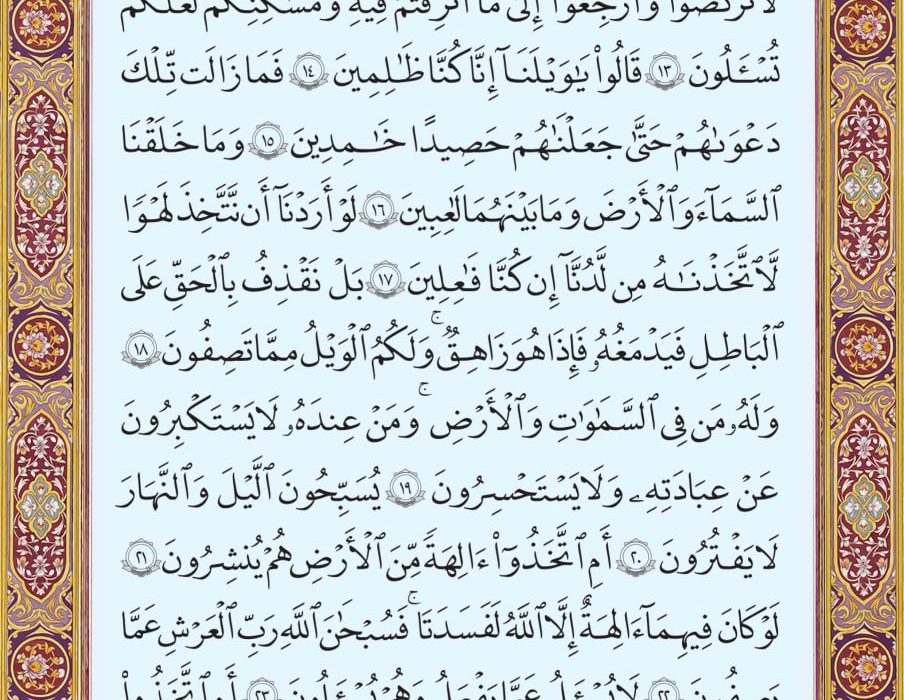 لَا تَرْكُضُوا۟ وَٱرْجِعُوٓا۟ إِلَىٰ مَآ أُتْرِفْتُمْ فِيهِ وَمَسَٰكِنِكُمْ لَعَلَّكُمْ
تُسْـَٔلُونَ ١٣ قَالُوا۟ يَٰوَيْلَنَآ إِنَّا كُنَّا ظَٰلِمِينَ ١٤ فَمَا زَالَت تِّلْكَ
دَعْوَىٰهُمْ حَتَّىٰ جَعَلْنَٰهُمْ حَصِيدًا خَٰمِدِينَ ١٥ وَمَا خَلَقْنَا
ٱلسَّمَآءَ وَٱلْأَرْضَ وَمَا بَيْنَهُمَا لَٰعِبِينَ ١٦ لَوْ أَرَدْنَآ أَن نَّتَّخِذَ لَهْوًا
لَّٱتَّخَذْنَٰهُ مِن لَّدُنَّآ إِن كُنَّا فَٰعِلِينَ ١٧ بَلْ نَقْذِفُ بِٱلْحَقِّ عَلَى
ٱلْبَٰطِلِ فَيَدْمَغُهُۥ فَإِذَا هُوَ زَاهِقٌ ۚ وَلَكُمُ ٱلْوَيْلُ مِمَّا تَصِفُونَ ١٨
وَلَهُۥ مَن فِى ٱلسَّمَٰوَٰتِ وَٱلْأَرْضِ ۚ وَمَنْ عِندَهُۥ لَا يَسْتَكْبِرُونَ
عَنْ عِبَادَتِهِۦ وَلَا يَسْتَحْسِرُونَ ١٩ يُسَبِّحُونَ ٱلَّيْلَ وَٱلنَّهَارَ
لَا يَفْتُرُونَ ٢٠ أَمِ ٱتَّخَذُوٓا۟ ءَالِهَةً مِّنَ ٱلْأَرْضِ هُمْ يُنشِرُونَ ٢١
لَوْ كَانَ فِيهِمَآ ءَالِهَةٌ إِلَّا ٱللَّهُ لَفَسَدَتَا ۚ فَسُبْحَٰنَ ٱللَّهِ رَبِّ ٱلْعَرْشِ عَمَّا
يَصِفُونَ ٢٢ لَا يُسْـَٔلُ عَمَّا يَفْعَلُ وَهُمْ يُسْـَٔلُونَ ٢٣ أَمِ ٱتَّخَذُوا۟